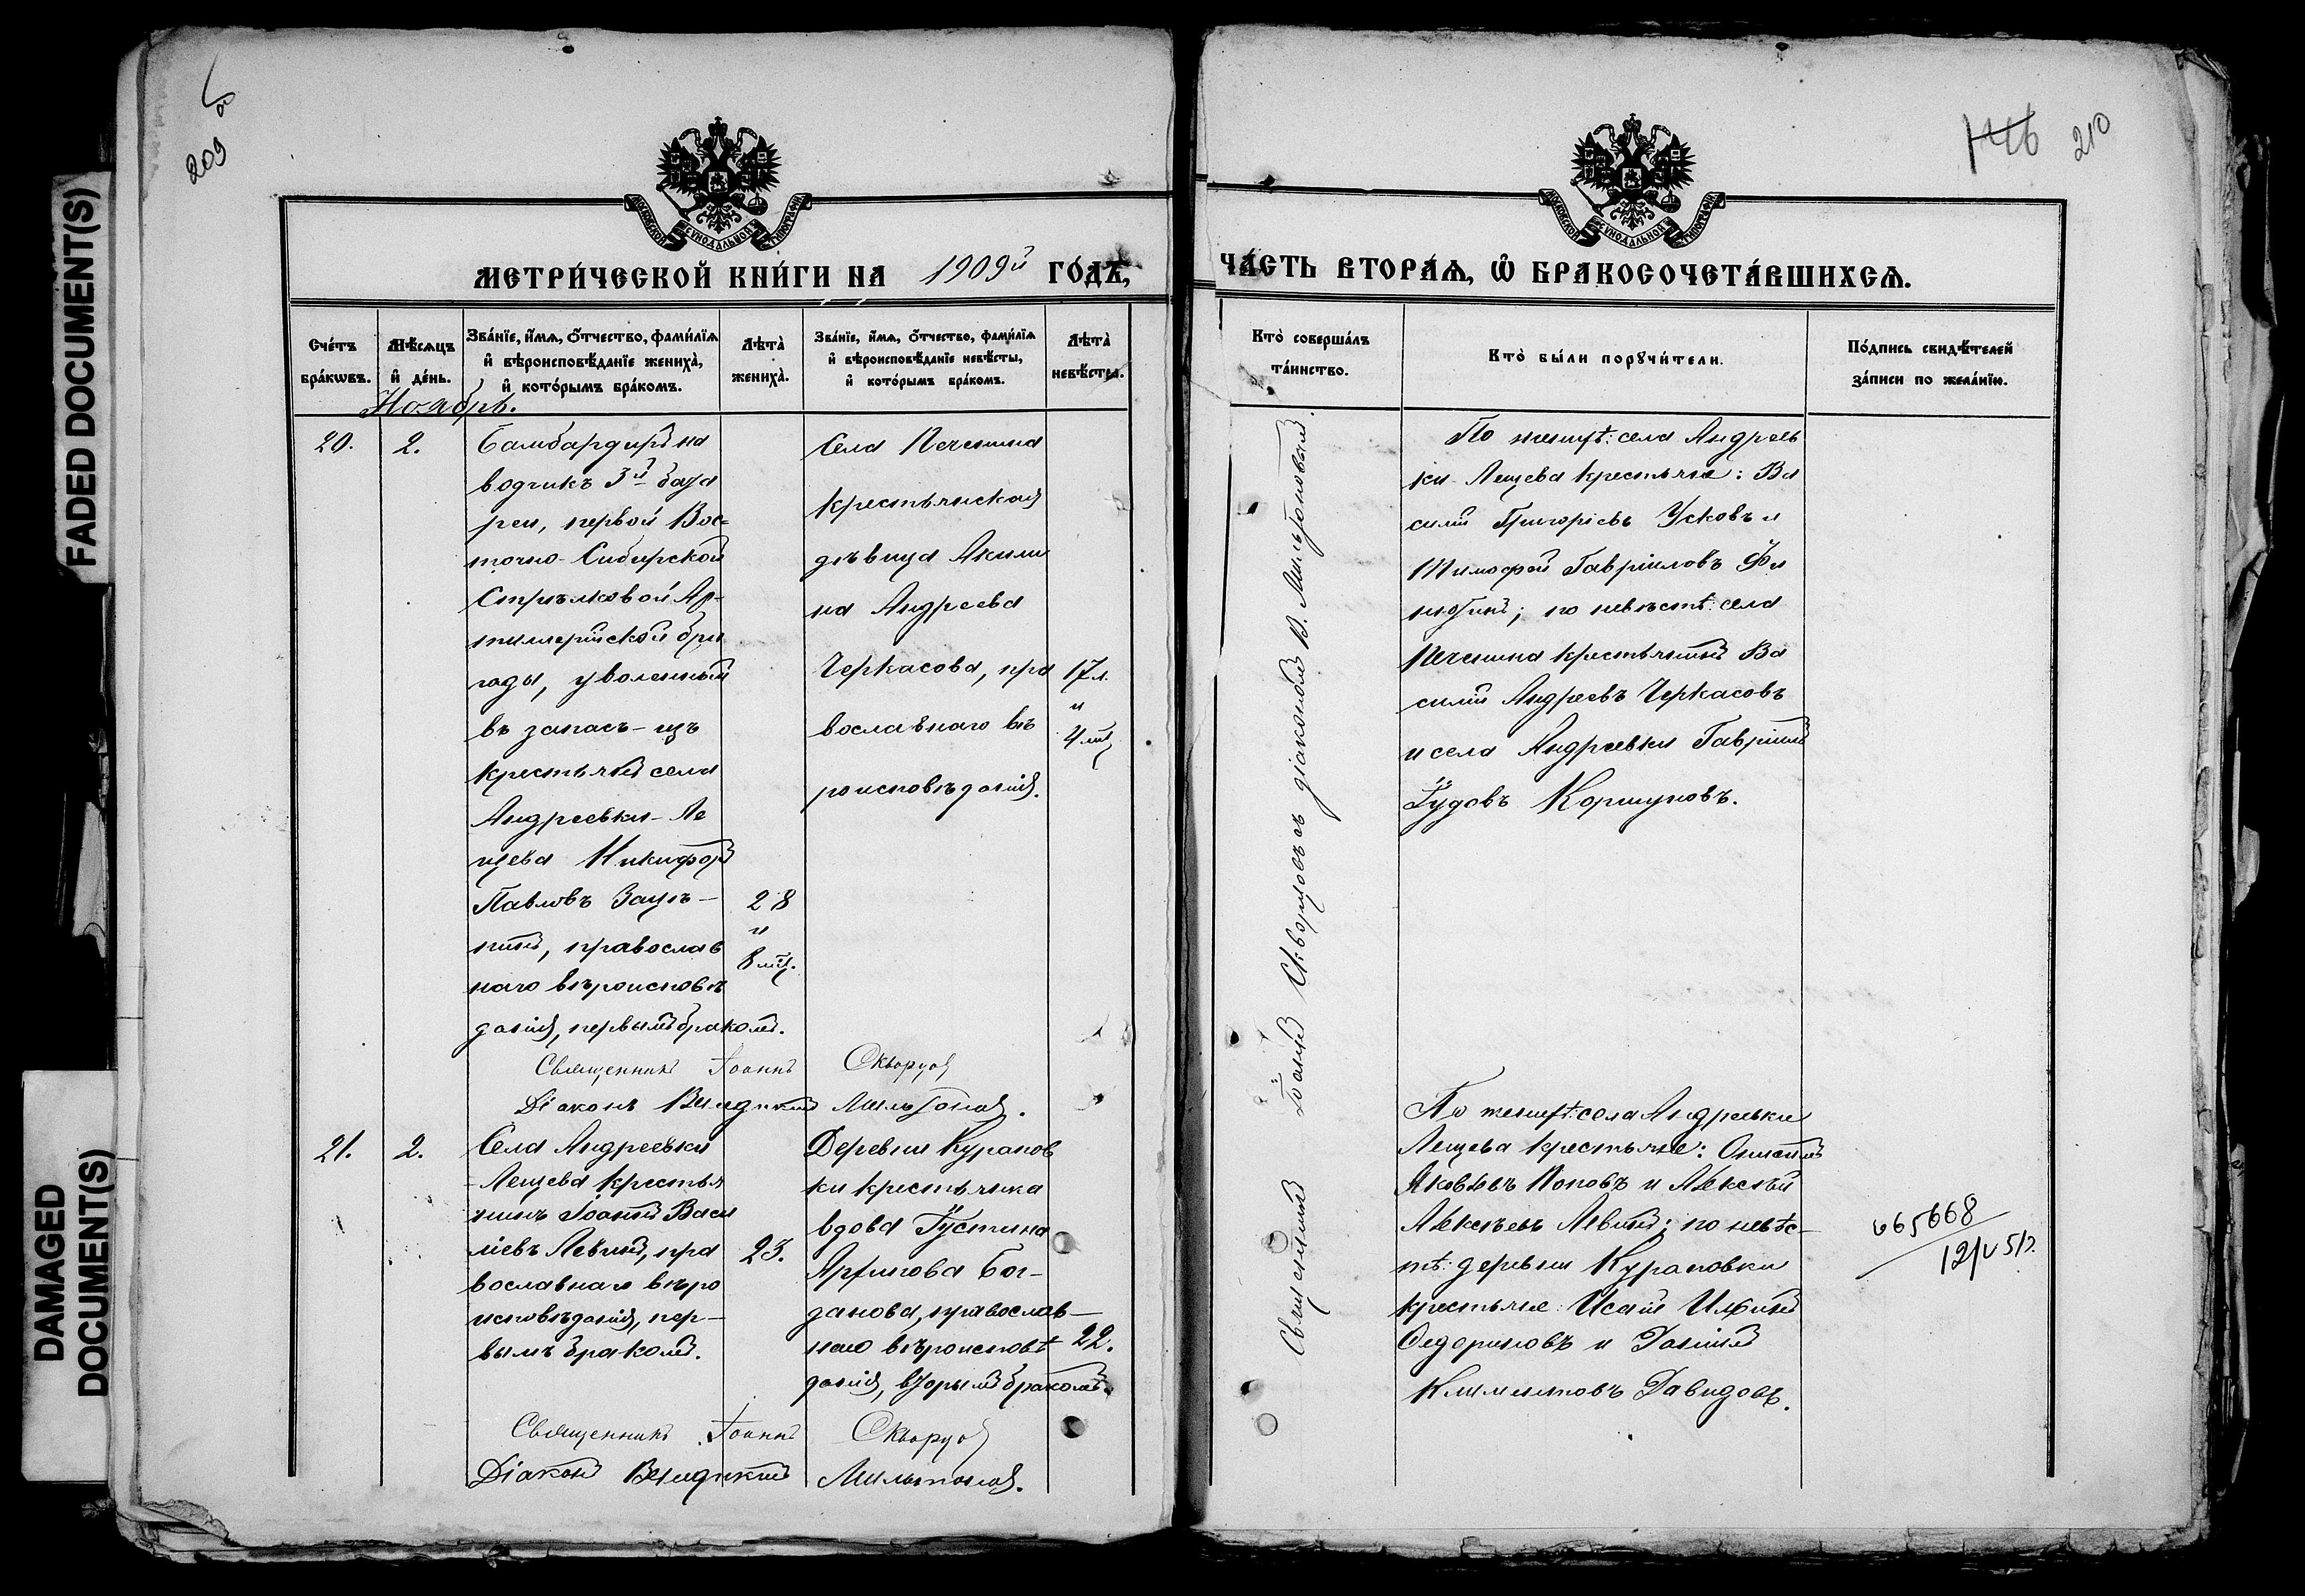 FADED DOCUMENT(S)
DAMAGED
DOCUMENT(S)
209
об
МОСКОВСКОЙ СѴНОДАЛЬНОЙ ТИПОГРАФІИ
МЕТРИ́ЧЕСКОЙ КНИ́ГИ НА 1909й ГО́ДЪ,
Сче́тъ бра́кѡвъ.
Мѣ́сяцъ и҆ де́нь.
Зва́нїе, и҆́мѧ, ѻ҆́тчество, фами́лїѧ
и҆ вѣроисповѣ́данїе жениха̀,
и҆ кото́рымъ бра́комъ.
Лѣта̀
жениха̀.
Зва́нїе, и҆́мѧ, ѻ҆́тчество, фами́лїѧ
и҆ вѣроисповѣ́данїе невѣ́сты,
и҆ кото́рымъ бра́комъ.
Лѣта̀
невѣ́сты.
Ноябрь.
20.
2.
Бамбардиръ на
водчикъ 3й бата
реи, первой Вос=
точно-Сибирской
Стрѣлковой Ар-
тиллерійской бри
гады, уволенный
въ запасъ - изъ
крестьянъ села
Андреевки - Ле
щева Никифоръ
Павловъ
православ
наго вѣроисповѣ
данія, первымъ бракомъ.
28
и
8 мѣс.
Села Печенина
крестьянская
дѣвица Акили
на Андреева
Черкасова, пра
вославнаго вѣ
роисповѣданія.
17 л.
и
4 мѣс
Священникъ Іоаннъ Скворцовъ
Діаконъ Венедиктъ Мильтоновъ.
21.
2.
Села Андреевки
-Лещева крестья
нинъ Іоаннъ Васи
ліевъ Левинъ, пра
вославнаго вѣро
исповѣданія, пер-
вымъ бракомъ.
23.
Деревни Курапов
ки крестьянка
вдова Іустина
Бог-
данова, православ-
наго вѣроисповѣ
данія, вторымъ бракомъ.
22.
Священникъ Іоаннъ Скворцовъ
Діаконъ Венедиктъ Мильтоновъ.
146 210
МОСКОВСКОЙ СѴНОДАЛЬНОЙ ТИПОГРАФІИ
ЧА́СТЬ ВТОРА́Ѧ, Ѽ БРАКОСОЧЕТА́ВШИХСѦ.
Кто̀ соверша́лъ
та́инство.
Кто̀ бы́ли порꙋчи́тели.
По́дпись свидѣ́телей
за́писи по жела́нїю.
Священникъ Іоаннъ Скворцовъ съ діакономъ В. Мильтоновымъ.
По женихѣ: села Андреев
ки - Лещева крестьяне: Ва
силій Григоріевъ Усковъ и
Тимофей Гавріиловъ
по невѣстѣ: села
Печенина крестьянинъ Ва
силій Андреевъ Черкасовъ
и села Андреевки Гавріилъ
Іудовъ Коршуновъ.
По женихѣ: села Андреевки
Лещева крестьяне: Онисимъ
Яковлевъ Поповъ и Алексѣй
Алексѣевъ Левинъ; по невѣс-
тѣ: деревни Кураповки
крестьяне: Исаій
Федориновъ и Даніилъ
Климентовъ Давидовъ.
665668
12/V 51г.